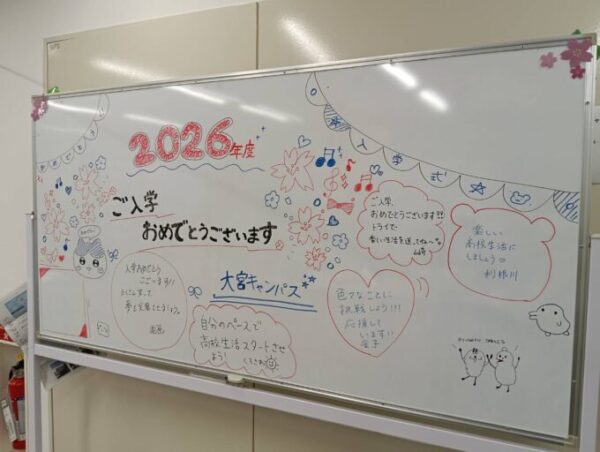 2026年度
ご入学
おめでとうございます
大宮キャンパス
入学式
ご入学、
おめでとうございます!!
トライで
楽しい生活を送ってね〜な
山崎
楽しい
高校生活に
しましょう
利根川
色々なことに
挑戦しよう!!!
応援して
います!!
金子
自分のペースで
高校生活スタートさせ
よう!
入学おめでとう
ございます!!